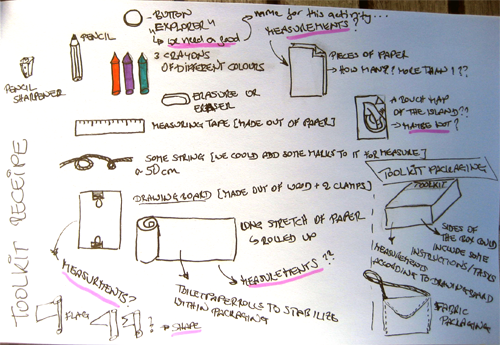 - BUTTON
"EXPLORER"
↳ WE NEED A GOOD
NAME FOR THIS ACTIVITY...
PENCIL
PENCIL
SHARPENER
3 CRAYONS
OF DIFFERENT COLOURS
MEASUREMENTS?
PIECES OF PAPER
→ HOW MANY? MORE THAN 1??
ERASURE OR
ERASER
A TOUCH MAP
OF THE ISLAND??
→ MAYBE NOT?
MEASURING TAPE [MADE OUT OF PAPER]
SOME STRING [WE COULD ADD SOME MARKS TO IT FOR MEASURE]
50cm
TOOLKIT RECEIPE
DRAWING BOARD [MADE OUT OF WOOD + 2 CLAMPS]
LONG STRETCH OF PAPER
↳ ROLLED UP
MEASUREMENTS??
MEASURMENTS?
TOILETPAPERROLLS TO STABILIZE
WITHIN PACKAGING
FLAG
?
→ SHAPE
TOOLKIT PACKAGING
TOOLKIT
SIDES OF
THE BOX COULD
INCLUDE SOME
INSTRUCTIONS/TASKS
MEASUREMENTS
ACCORDING TO DRAWINGBOARD
FABRIC
PACKAGING